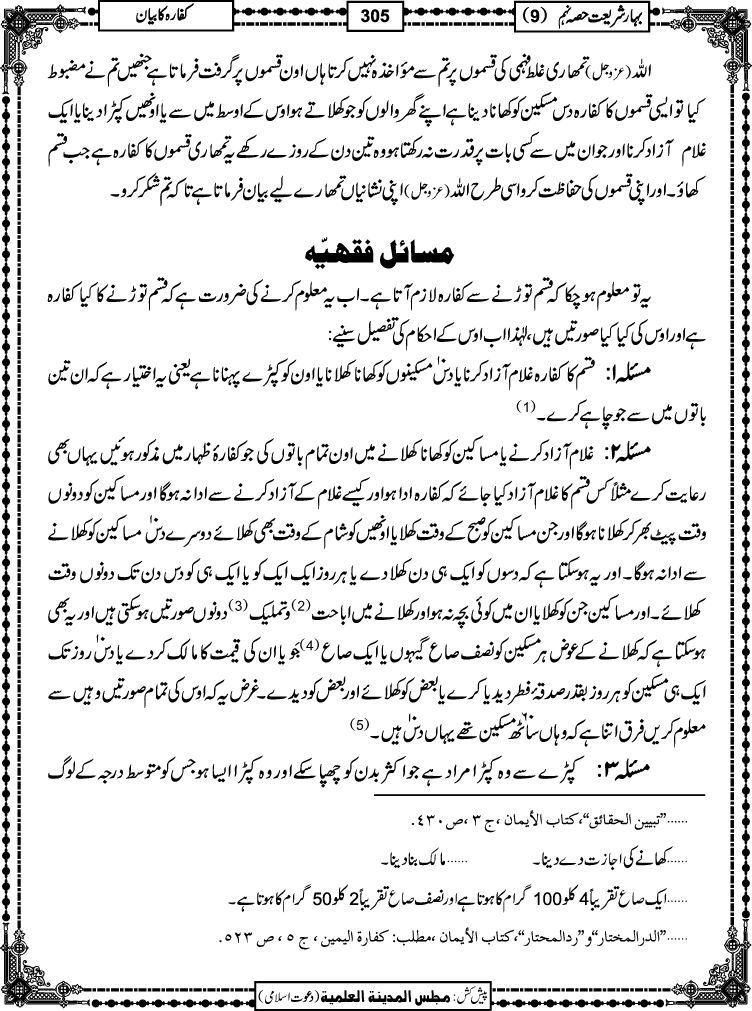 بہار شریعت حصہ نہم (9)
305
کفارہ کا بیان
اللہ (عزوجل) تمھاری غلط فہمی کی قسموں پر تم سے مؤاخذہ نہیں کرتا ہاں اون قسموں پر گرفت فرماتا ہے جنھیں تم نے مضبوط
کیا تو ایسی قسموں کا کفارہ دس مسکین کو کھانا دینا ہے اپنے گھر والوں کو جو کھلاتے ہو اوس کے اوسط میں سے یا اونھیں کپڑا دینا یا ایک
غلام آزاد کرنا اور جو ان میں سے کسی بات پر قدرت نہ رکھتا ہو وہ تین دن کے روزے رکھے یہ تمھاری قسموں کا کفارہ ہے جب قسم
کھاؤ۔ اور اپنی قسموں کی حفاظت کرو اسی طرح اللہ (عزوجل) اپنی نشانیاں تمھارے لیے بیان فرماتا ہے تاکہ تم شکر کرو۔
مسائل فقهیّه
یہ تو معلوم ہو چکا کہ قسم توڑنے سے کفارہ لازم آتا ہے۔ اب یہ معلوم کرنے کی ضرورت ہے کہ قسم توڑنے کا کیا کفارہ
ہے اور اوس کی کیا کیا صورتیں ہیں، لہٰذا اب اوس کے احکام کی تفصیل سنیے:
مسئلہ ۱: قسم کا کفارہ غلام آزاد کرنا یا دس۱۰ مسکینوں کو کھانا کھلانا یا اون کو کپڑے پہنانا ہے یعنی یہ اختیار ہے کہ ان تین
باتوں میں سے جو چاہے کرے۔ (1)
مسئلہ ۲: غلام آزاد کرنے یا مساکین کو کھانا کھلانے میں اون تمام باتوں کی جو کفارۂ ظہار میں مذکور ہوئیں یہاں بھی
رعایت کرے مثلاً کس قسم کا غلام آزاد کیا جائے کہ کفارہ ادا ہو اور کیسے غلام کے آزاد کرنے سے ادا نہ ہوگا اور مساکین کو دونوں
وقت پیٹ بھر کر کھلانا ہوگا اور جن مساکین کو صبح کے وقت کھلایا اونھیں کو شام کے وقت بھی کھلائے دوسرے دس۱۰ مساکین کو کھلانے
سے ادا نہ ہوگا۔ اور یہ ہوسکتا ہے کہ دسوں کو ایک ہی دن کھلا دے یا ہر روز ایک ایک کو یا ایک ہی کو دس دن تک دونوں وقت
کھلائے۔ اور مساکین جن کو کھلایا ان میں کوئی بچہ نہ ہو اور کھلانے میں اباحت (2) و تملیک (3) دونوں صورتیں ہوسکتی ہیں اور یہ بھی
ہوسکتا ہے کہ کھلانے کے عوض ہر مسکین کو نصف صاع گیہوں یا ایک صاع (4) جَو یا ان کی قیمت کا مالک کر دے یا دس۱۰ روز تک
ایک ہی مسکین کو ہر روز بقدر صدقۂ فطر دیدیا کرے یا بعض کو کھلائے اور بعض کو دیدے۔ غرض یہ کہ اوس کی تمام صورتیں وہیں سے
معلوم کریں فرق اتنا ہے کہ وہاں ساٹھ۶۰ مسکین تھے یہاں دس۱۰ ہیں۔ (5)
مسئلہ ۳: کپڑے سے وہ کپڑا مراد ہے جو اکثر بدن کو چھپا سکے اور وہ کپڑا ایسا ہو جس کو متوسط درجہ کے لوگ
......”تبیین الحقائق“، کتاب الأیمان، ج ۳، ص ۴۳۰.
......کھانے کی اجازت دے دینا۔ ......مالک بنا دینا۔
......ایک صاع تقریباً 4 کلو 100 گرام کا ہوتا ہے اور نصف صاع تقریباً 2 کلو 50 گرام کا ہوتا ہے۔
......”الدرالمختار“ و ”ردالمحتار“، کتاب الأیمان، مطلب: کفارة الیمین، ج ۵، ص ۵۲۳.
پیش کش: مجلس المدينة العلمية (دعوت اسلامی)